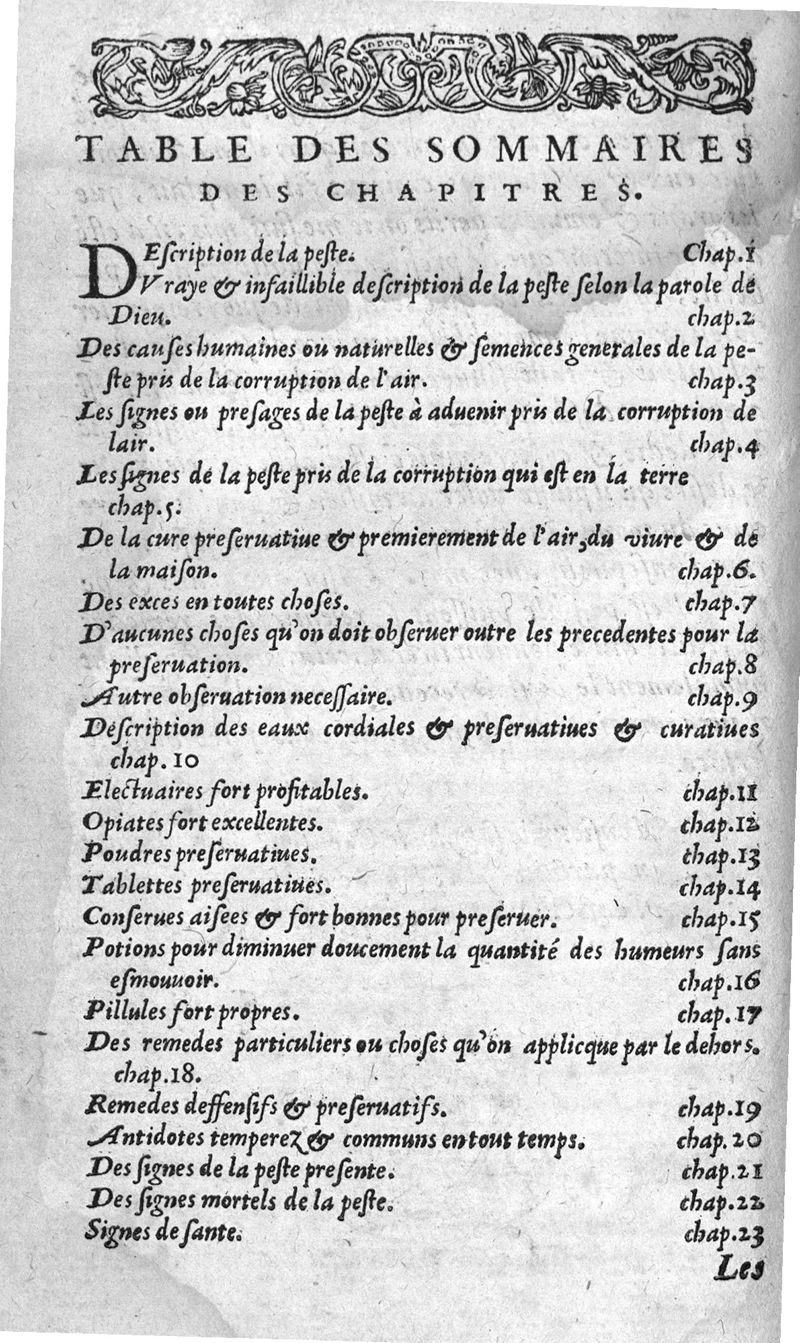 TABLE DES SOMMAIRES
DES CHAPITRES.
DEſcription de la peſte. Chap.1
Vraye & infaillible deſcription de la peſte ſelon la parole de
Dieu. chap.2
Des cauſes humaines ou naturelles & ſemences generales de la pe-
ſte pris de la corruption de l'air. chap.3
Les ſignes ou preſages de la peſte à aduenir pris de la corruption de
lair. chap.4
Les ſignes de la peſte pris de la corruption qui est en la terre
chap.5.
De la cure preſeruatiue & premierement de l'air, du viure & de
la maiſon. chap.6.
Des exces en toutes choſes. chap.7
D'aucunes choſes qu'on doit obſeruer outre les precedentes pour la
preſeruation. chap.8
Autre obſeruation neceſſaire. chap.9
Deſcription des eaux cordiales & preſeruatiues & curatiues
chap.10
Electuaires fort profitables. chap.11
Opiates fort excellentes. chap.12
Poudres preſeruatiues. chap.13
Tablettes preſeruatiues. chap.14
Conſerues aiſees & fort bonnes pour preſeruer. chap.15
Potions pour diminuer doucement la quantité des humeurs ſans
eſmouuoir. chap.16
Pillules fort propres. chap.17
Des remedes particuliers ou choſes qu'on applicque par le dehors.
chap.18.
Remedes deffenſifs & preſeruatifs. chap.19
Antidotes temperez & communs en tout temps. chap.20
Des ſignes de la peſte preſente. chap.21
Des ſignes mortels de la peſte. chap.22
Signes de ſante. chap.23
Les